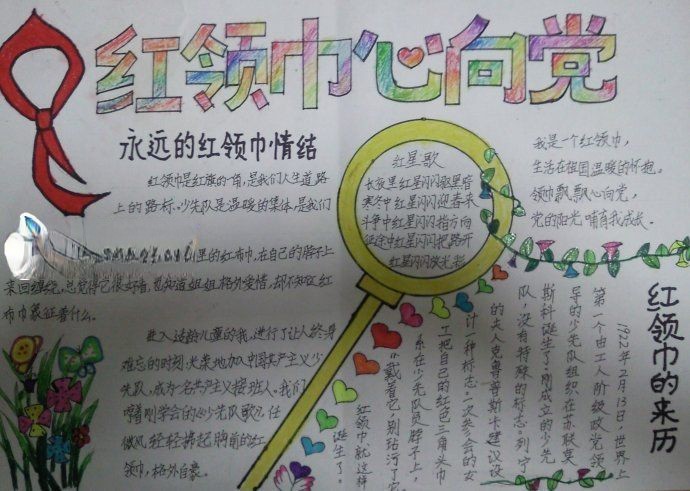 红领巾心向党
永远的红领巾情结
红领巾是红旗的一角,是我们人生道路
上的路标。少先队是温暖的集体,是我们
里的红布巾,在自己的脖子上
来回缠绕,总觉得它很好看,
格外爱惜,却不知这红
布巾象征着什么。
进入适龄儿童的我,进行了让人终身
难忘的时刻:光荣地加入中国共产主义少
先队,成为一名共产主义接班人。我们
哼着刚学会的《少先队歌》,任
微风轻轻拂起胸前的红
领巾,格外自豪。
红星歌
长夜里红星闪闪驱黑暗
寒冬中红星闪闪迎春来
斗争中红星闪闪指方向
征途中红星闪闪把路开
红星闪闪放光彩
我是一个红领巾,
生活在祖国温暖的怀抱。
领巾飘飘心向党,
党的阳光哺育我成长。
红领巾的来历
1922年2月13日,世界上
第一个由工人阶级政党领
导的少先队组织在苏联莫
斯科诞生了。刚成立的少先
队,没有特殊的标志。列宁
的夫人克鲁普斯卡建议设
计一种标志。一次集会的女
工把自己的红色三角头巾
系在少先队员脖子上,
“戴着它,别玷污了它”
红领巾就这样
诞生了。